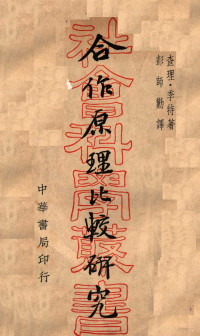 查理·季特著
彭師勤譯
合作原理比較研究
社會科學叢書
中華書局印行